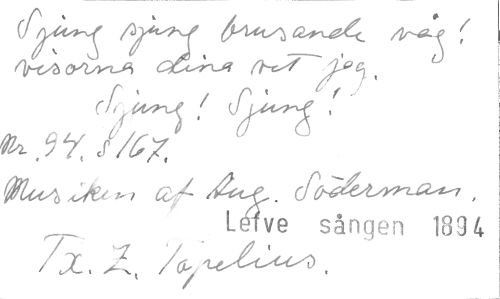 Sjung sjung brusande våg!
visorna dina vet jag.
Sjung! Sjung!
Nr. 94. s 167.
Musiken af Aug. Söderman.
Lefve sången 1894
Tx. Z. Topelius.